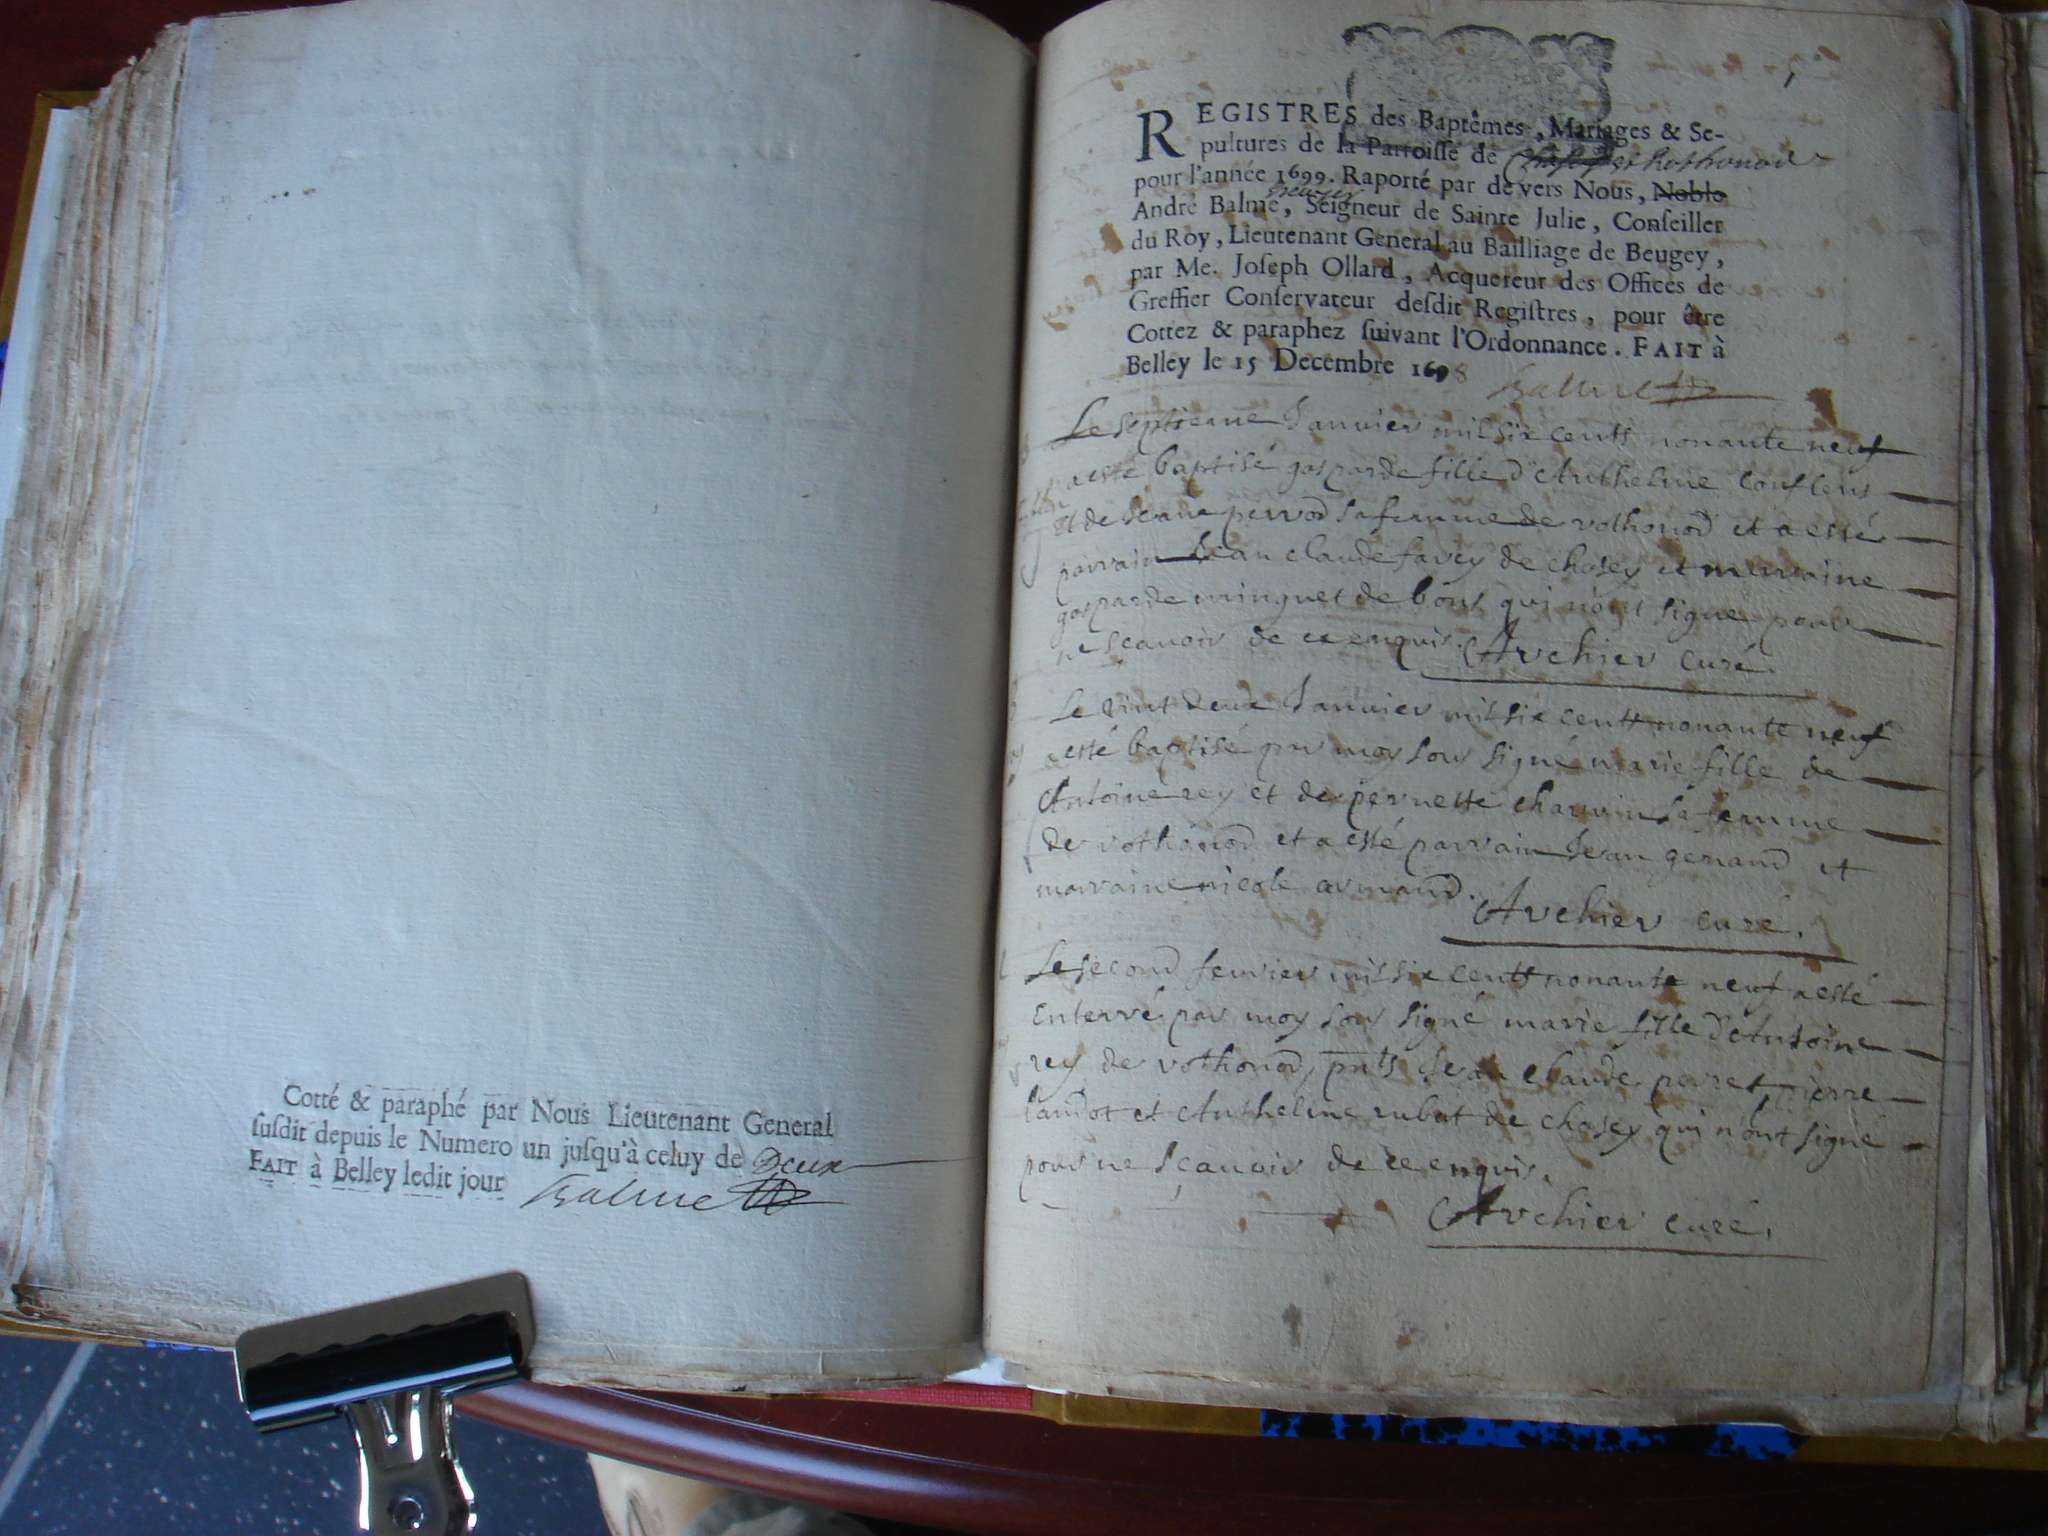 Cotté & paraphé par Nous Lieutenant General
susdit depuis le Numero un jusqu'à celuy de Deux
FAIT à Belley ledit jour Balme
REGISTRES des Baptêmes, Mariages & Se-
pultures de la Parroisse de Rothonod
pour l'année 1699. Raporté par devers Nous, Noble
André Balme, Seigneur de Sainte Julie, Conseiller
du Roy, Lieutenant General au Bailliage de Beugey,
par Me. Joseph Ollard, Acquereur des Offices de
Greffier Conservateur desdit Registres, pour être
Cottez & paraphez suivant l'Ordonnance. FAIT à
Belley le 15 Decembre 1698
Balme
Le septieme Janvier mil six cents nonante neuf
a esté baptisé gasparde fille d'Anthelme
et de Jeane perrod sa femme de rothonod et a esté
parrain Jean claude favey de chasey et marraine
gasparde minguet de bons qui n'ont signe pour
ne scavoir de ce enquis. Archier curé.
Le vint deux Janvier mil six centt nonante neuf
a esté baptisé par moy sous signé marie fille de
Antoine rey et de pernette charvin sa femme
de rothonod et a esté parrain Jean genand et
marraine nicole armand.
Archier curé.
Le second fevrier mil six centt nonante neuf a esté
Enterré par moy sous signé marie fille d'Antoine
rey de rothonod, pnts Jean claude peret, pierre
landot et Anthelme rubat de chasey qui n'ont signé
pour ne sçavoir de ce enquis.
Archier curé.